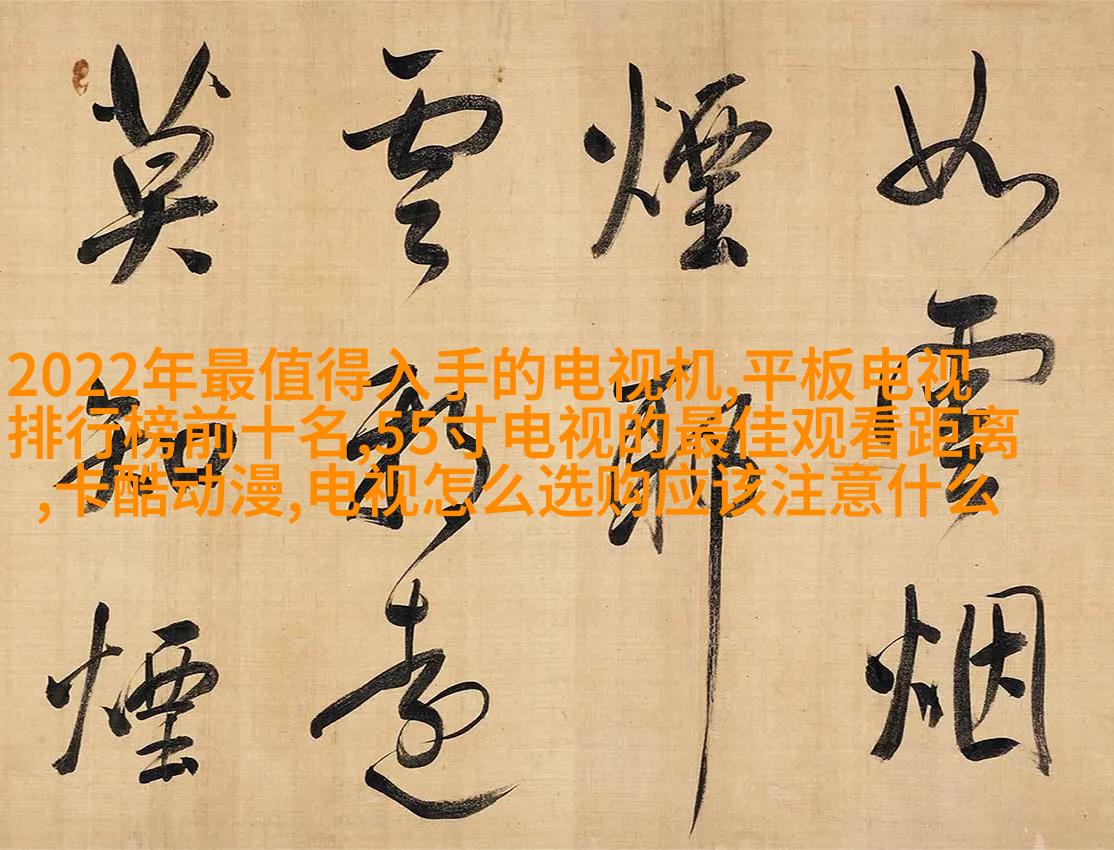 2022年最值得入手的电视机,平板电视
排行榜前十名,55寸电视的最佳观看距离
,卡酷动漫,电视怎么选购应该注意什么
如雲烟
煙耶
雲耶遠
莫知煙